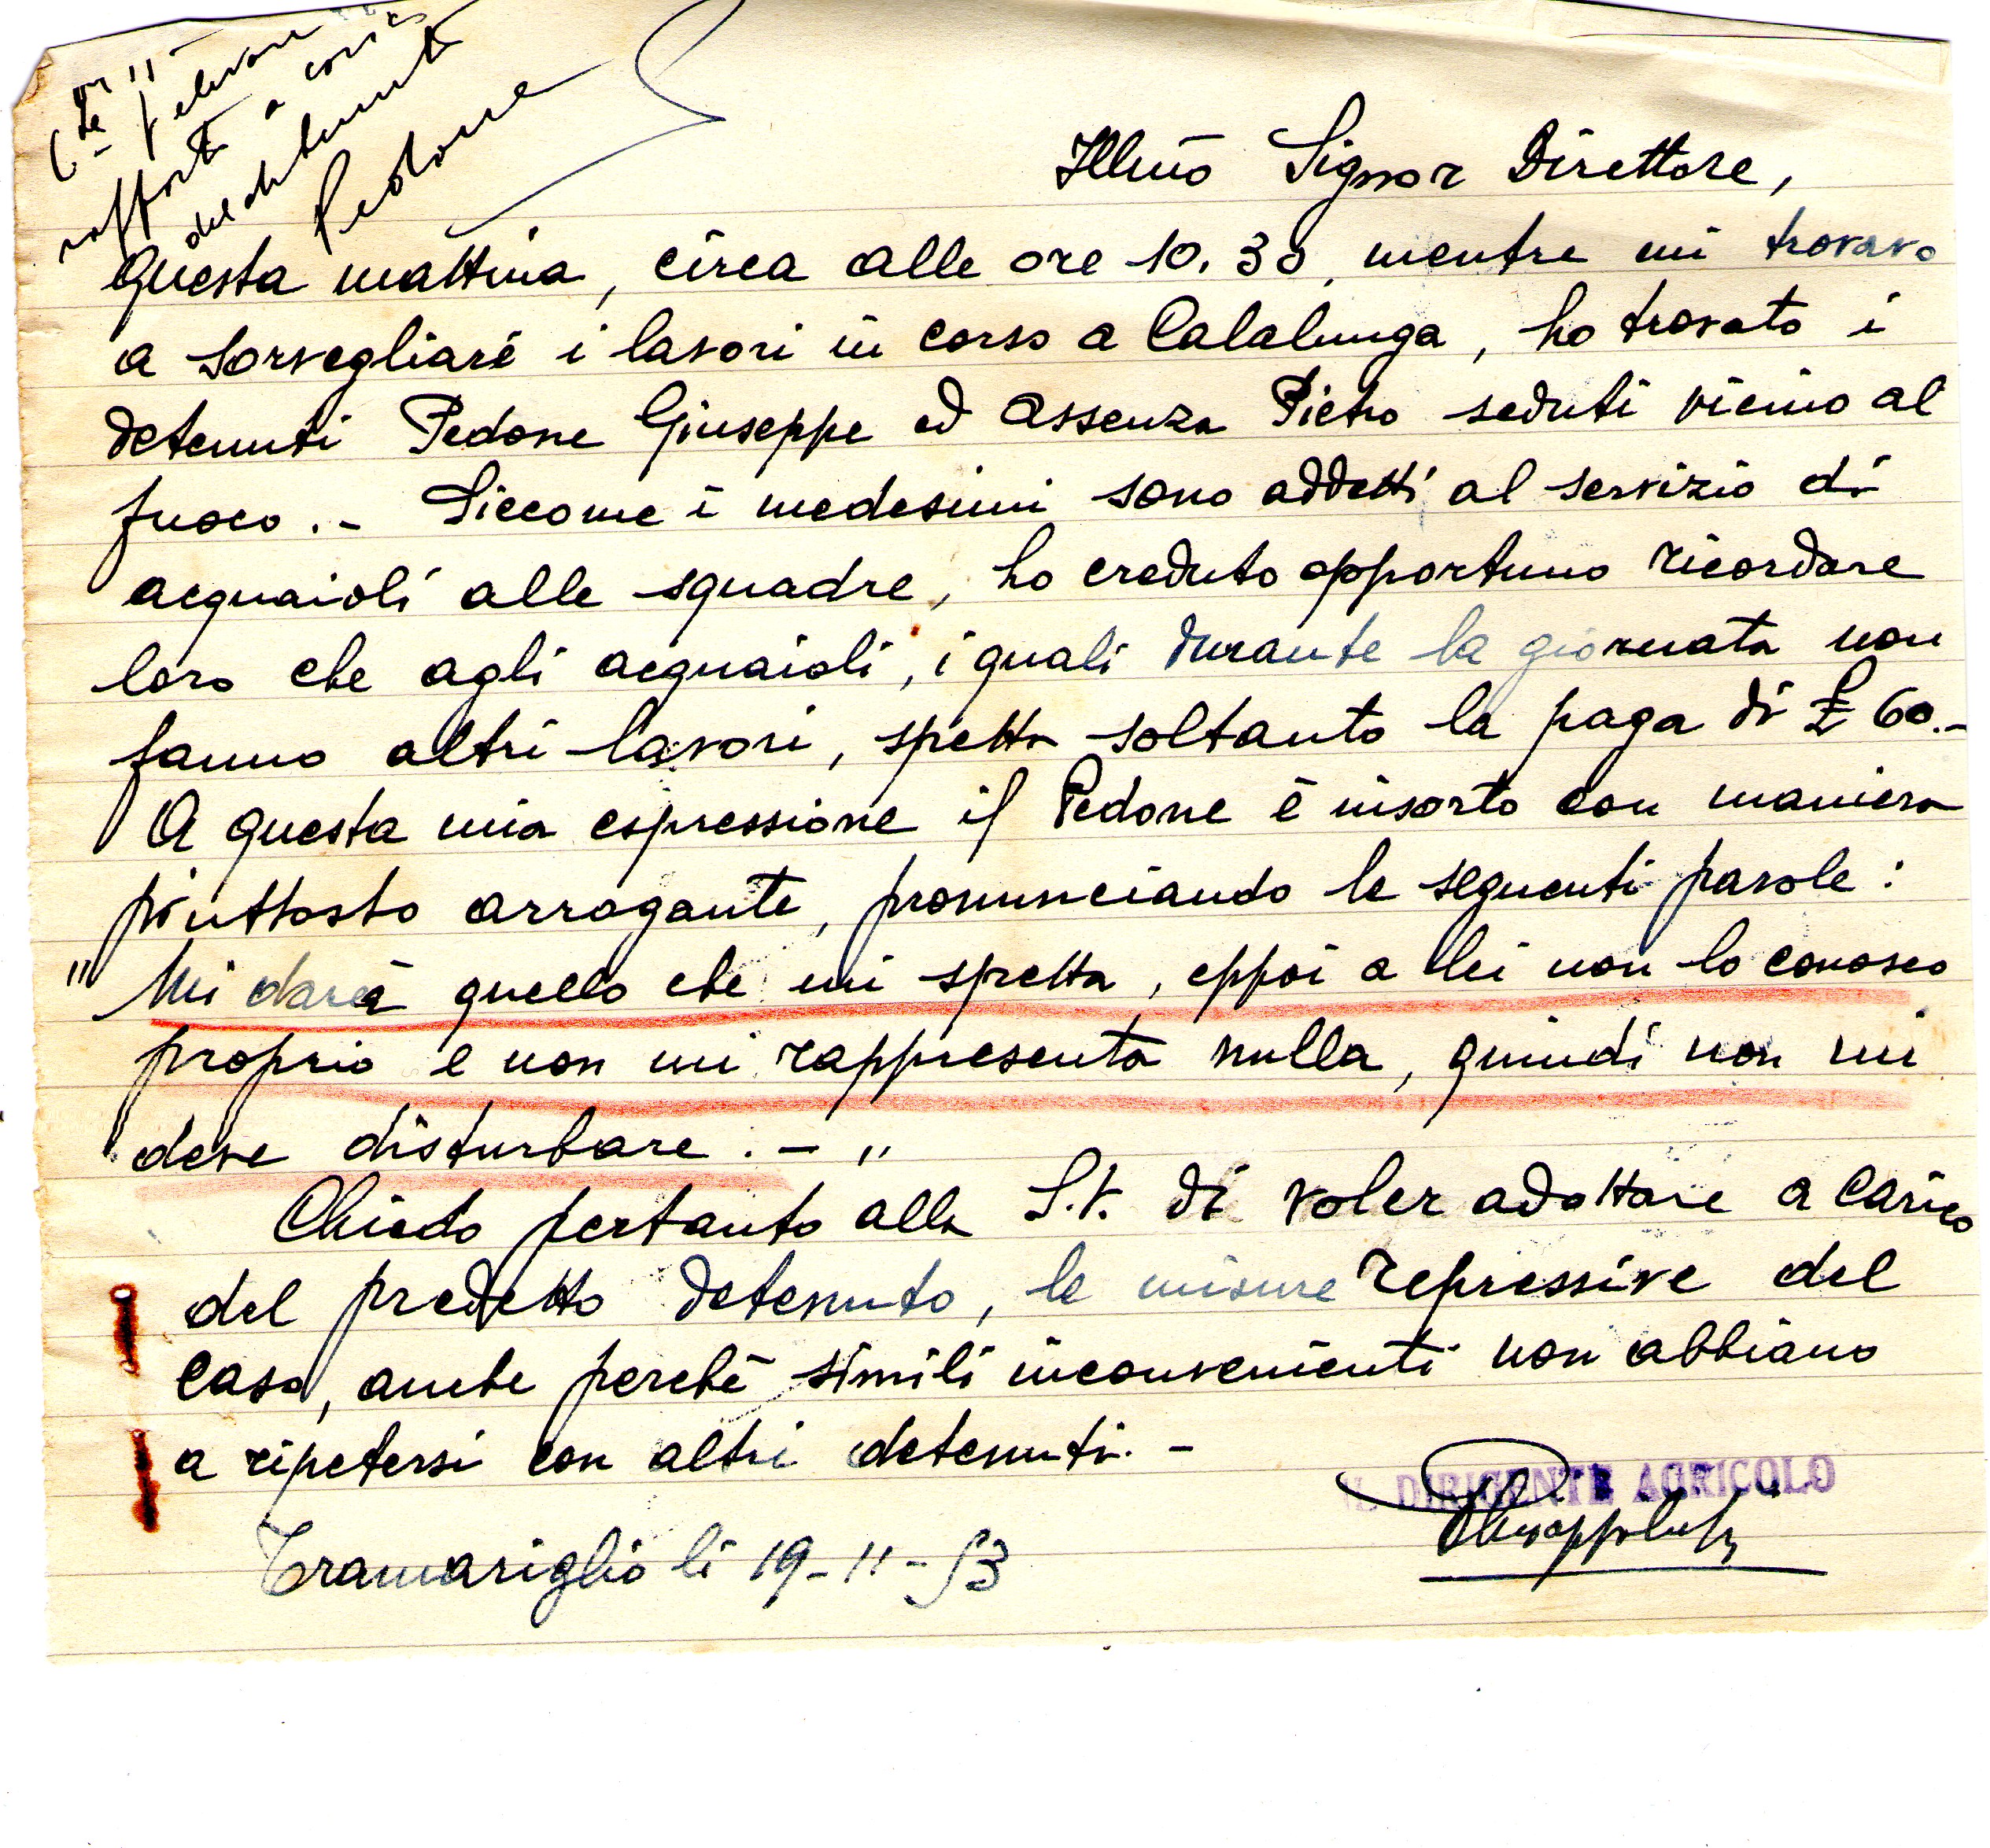 elevare
rapporto a carico
del detenuto
Pedone
Ill.mo Signor Direttore,
Questa mattina, circa alle ore 10.30, mentre mi trovavo
a sorvegliare i lavori in corso a Calalunga, ho trovato i
detenuti Pedone Giuseppe ed Assenza Pietro seduti vicino al
fuoco.- Siccome i medesimi sono addetti al servizio di
acquaioli alle squadre, ho creduto opportuno ricordare
loro che agli acquaioli, i quali durante la giornata non
fanno altri lavori, spetta soltanto la paga di £ 60.-
A questa mia espressione il Pedone è insorto con maniera
piuttosto arrogante, pronunciando le seguenti parole:
"Mi darà quello che mi spetta, eppoi a lei non lo conosco
proprio e non mi rappresenta nulla, quindi non mi
deve disturbare.-"
Chiedo pertanto alla S.V. di voler adottare a carico
del predetto detenuto, le misure repressive del
caso, anche perchè simili inconvenienti non abbiano
a ripetersi con altri detenuti.-
IL DIRIGENTE AGRICOLO
Tramariglio li 19-11-53